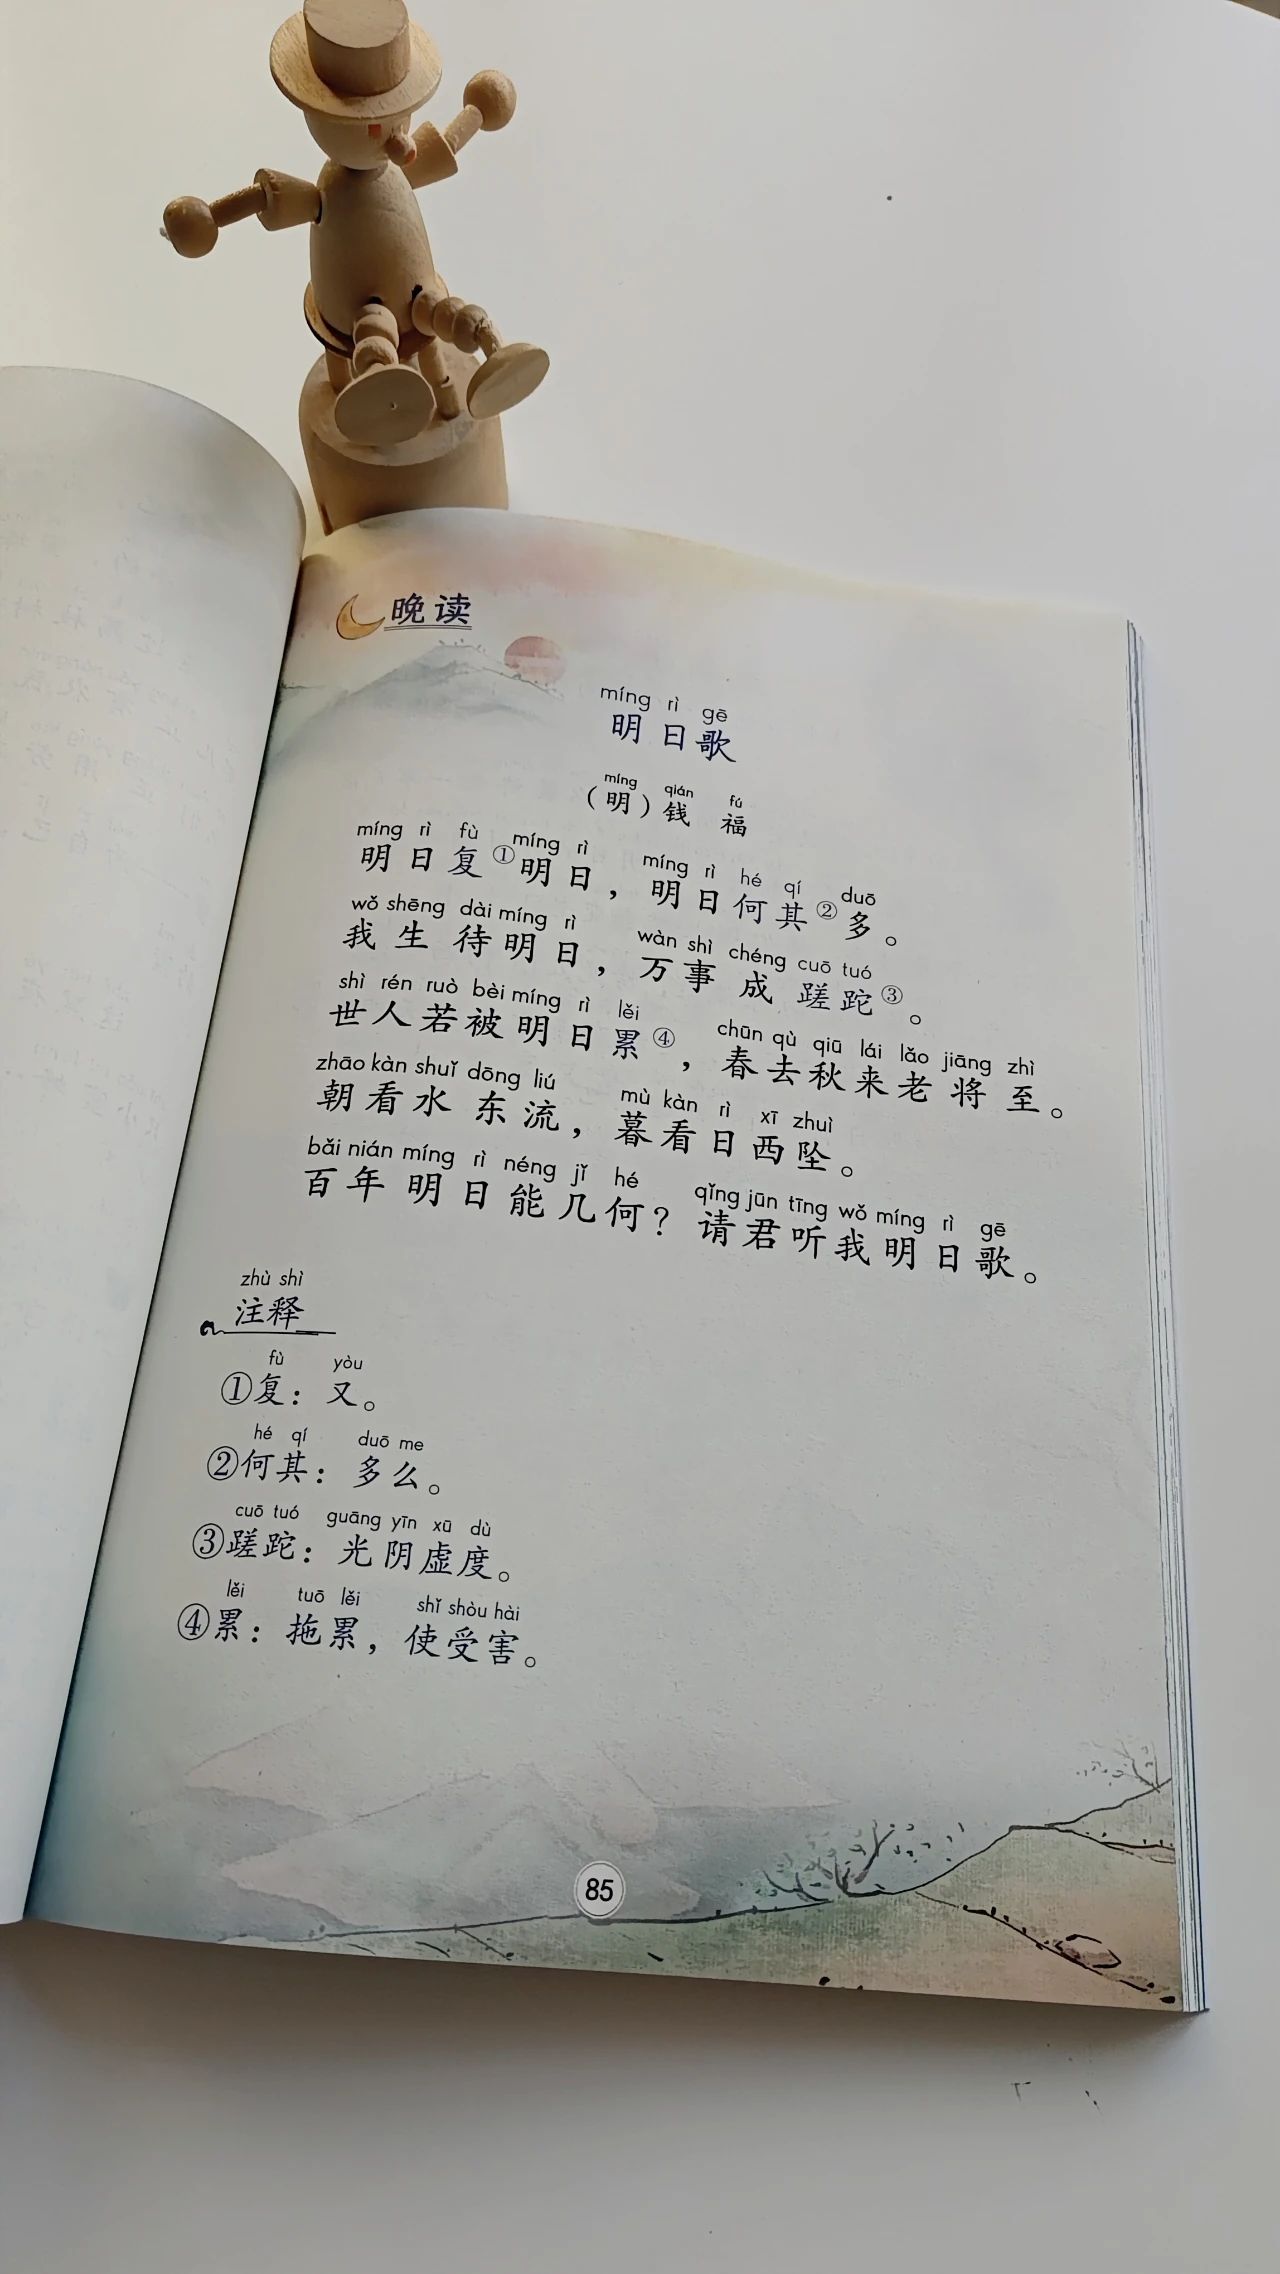 晚读
míng rì gē
明日歌
míng qián fú
（明）钱 福
míng rì fù míng rì míng rì hé qí duō
明日复①明日，明日何其②多。
wǒ shēng dài míng rì wàn shì chéng cuō tuó
我生待明日，万事成蹉跎③。
shì rén ruò bèi míng rì lěi chūn qù qiū lái lǎo jiāng zhì
世人若被明日累④，春去秋来老将至。
zhāo kàn shuǐ dōng liú mù kàn rì xī zhuì
朝看水东流，暮看日西坠。
bǎi nián míng rì néng jǐ hé qǐng jūn tīng wǒ míng rì gē
百年明日能几何？请君听我明日歌。
zhù shì
注释
fù yòu
①复：又。
hé qí duō me
②何其：多么。
cuō tuó guāng yīn xū dù
③蹉跎：光阴虚度。
lěi tuō lěi shǐ shòu hài
④累：拖累，使受害。
85